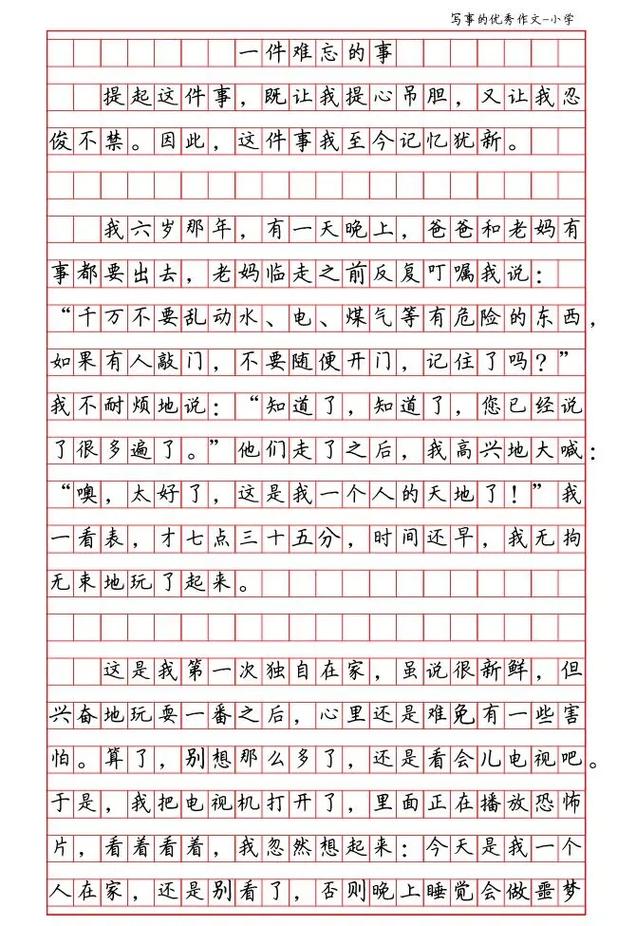 写事的优秀作文-小学
一件难忘的事
提起这件事，既让我提心吊胆，又让我忍
俊不禁。因此，这件事我至今记忆犹新。
我六岁那年，有一天晚上，爸爸和老妈有
事都要出去，老妈临走之前反复叮嘱我说：
“千万不要乱动水、电、煤气等有危险的东西，
如果有人敲门，不要随便开门，记住了吗？”
我不耐烦地说：“知道了，知道了，您已经说
了很多遍了。”他们走了之后，我高兴地大喊：
“噢，太好了，这是我一个人的天地了！”我
一看表，才七点三十五分，时间还早，我无拘
无束地玩了起来。
这是我第一次独自在家，虽说很新鲜，但
兴奋地玩耍一番之后，心里还是难免有一些害
怕。算了，别想那么多了，还是看会儿电视吧。
于是，我把电视机打开了，里面正在播放恐怖
片，看着看着，我忽然想起来：今天是我一个
人在家，还是别看了，否则晚上睡觉会做噩梦